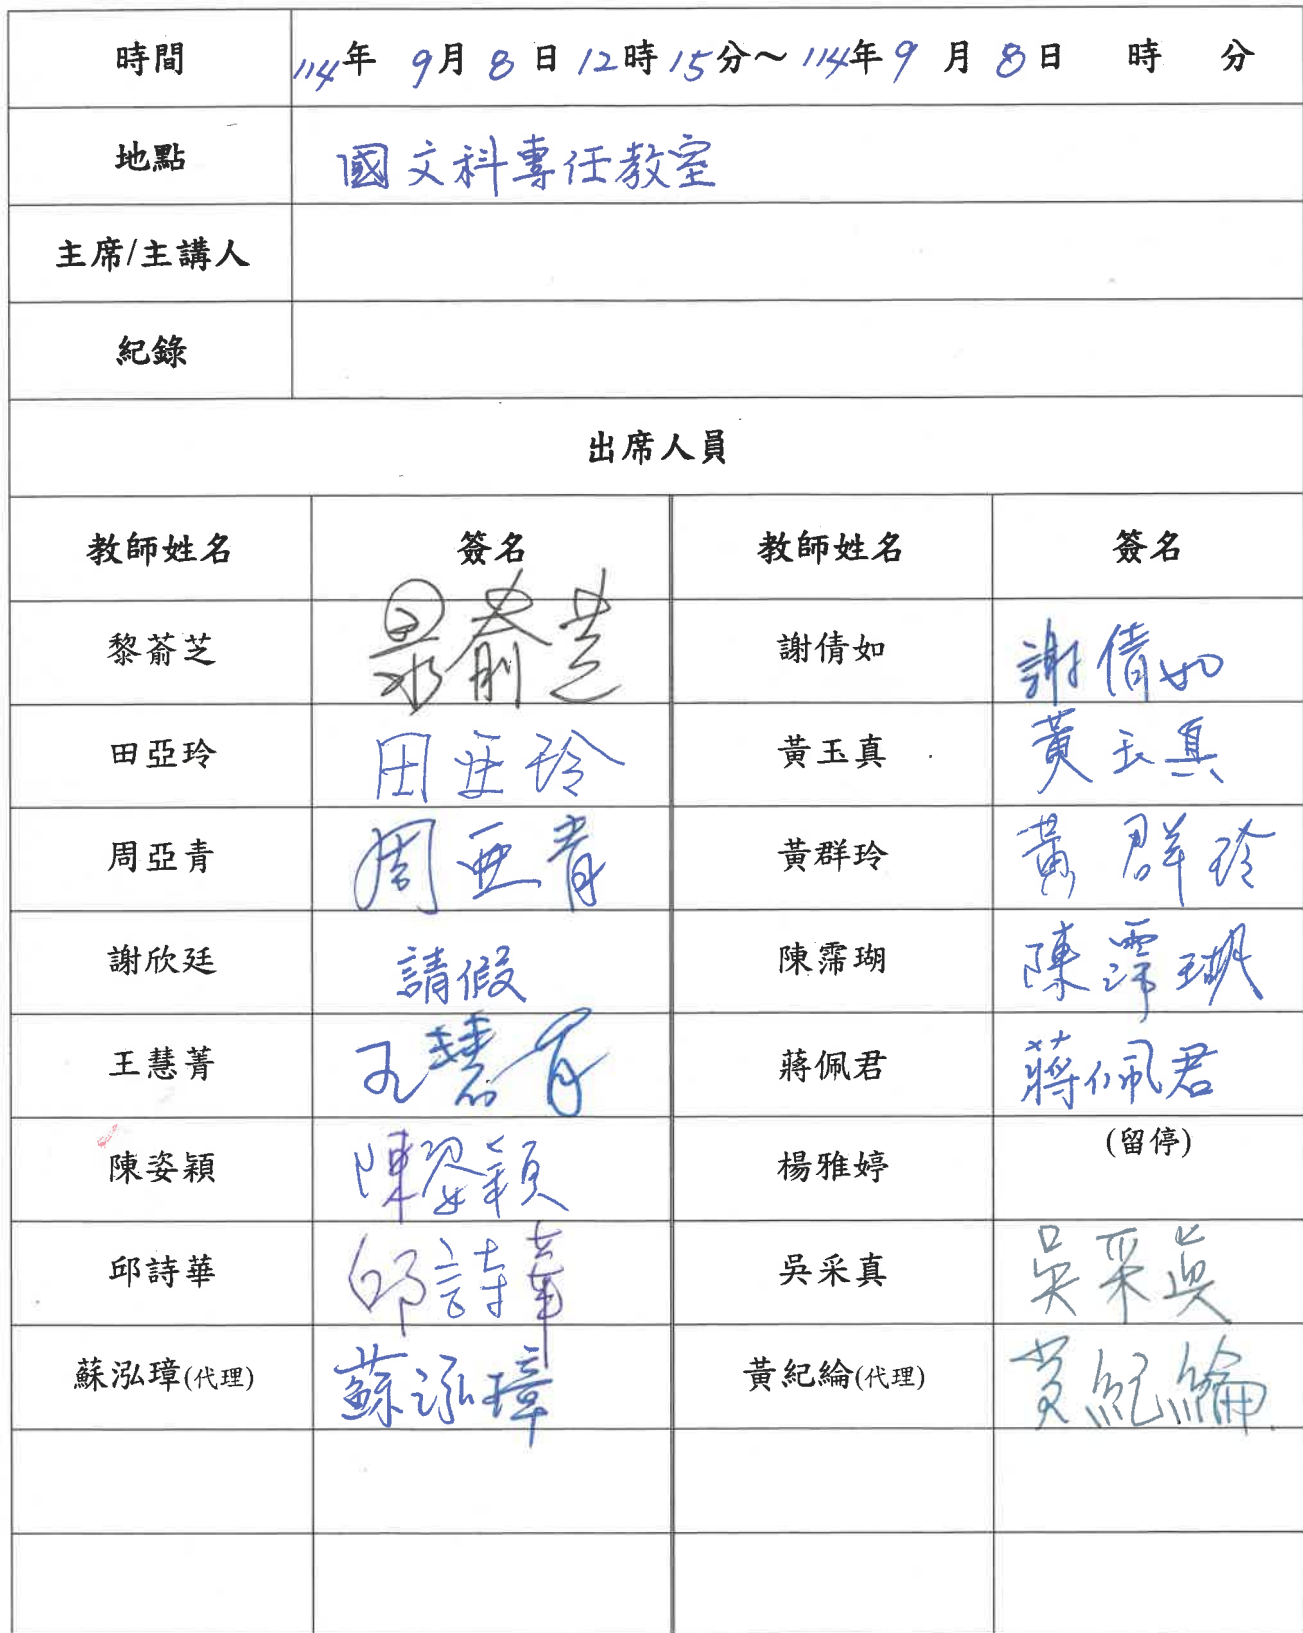 時間 114年 9月 8日 12時 15分～114年 9月 8日 時 分
地點 國文科專任教室
主席/主講人
紀錄
出席人員
教師姓名 簽名 教師姓名 簽名
黎萮芝 黎萮芝 謝倩如 謝倩如
田亞玲 田亞玲 黃玉真 黃玉真
周亞青 周亞青 黃群玲 黃群玲
謝欣廷 請假 陳霈瑚 陳霈瑚
王慧菁 王慧菁 蔣佩君 蔣佩君
陳姿穎 陳姿穎 楊雅婷 (留停)
邱詩華 邱詩華 吳采真 吳采真
蘇泓璋(代理) 蘇泓璋 黃紀綸(代理) 黃紀綸